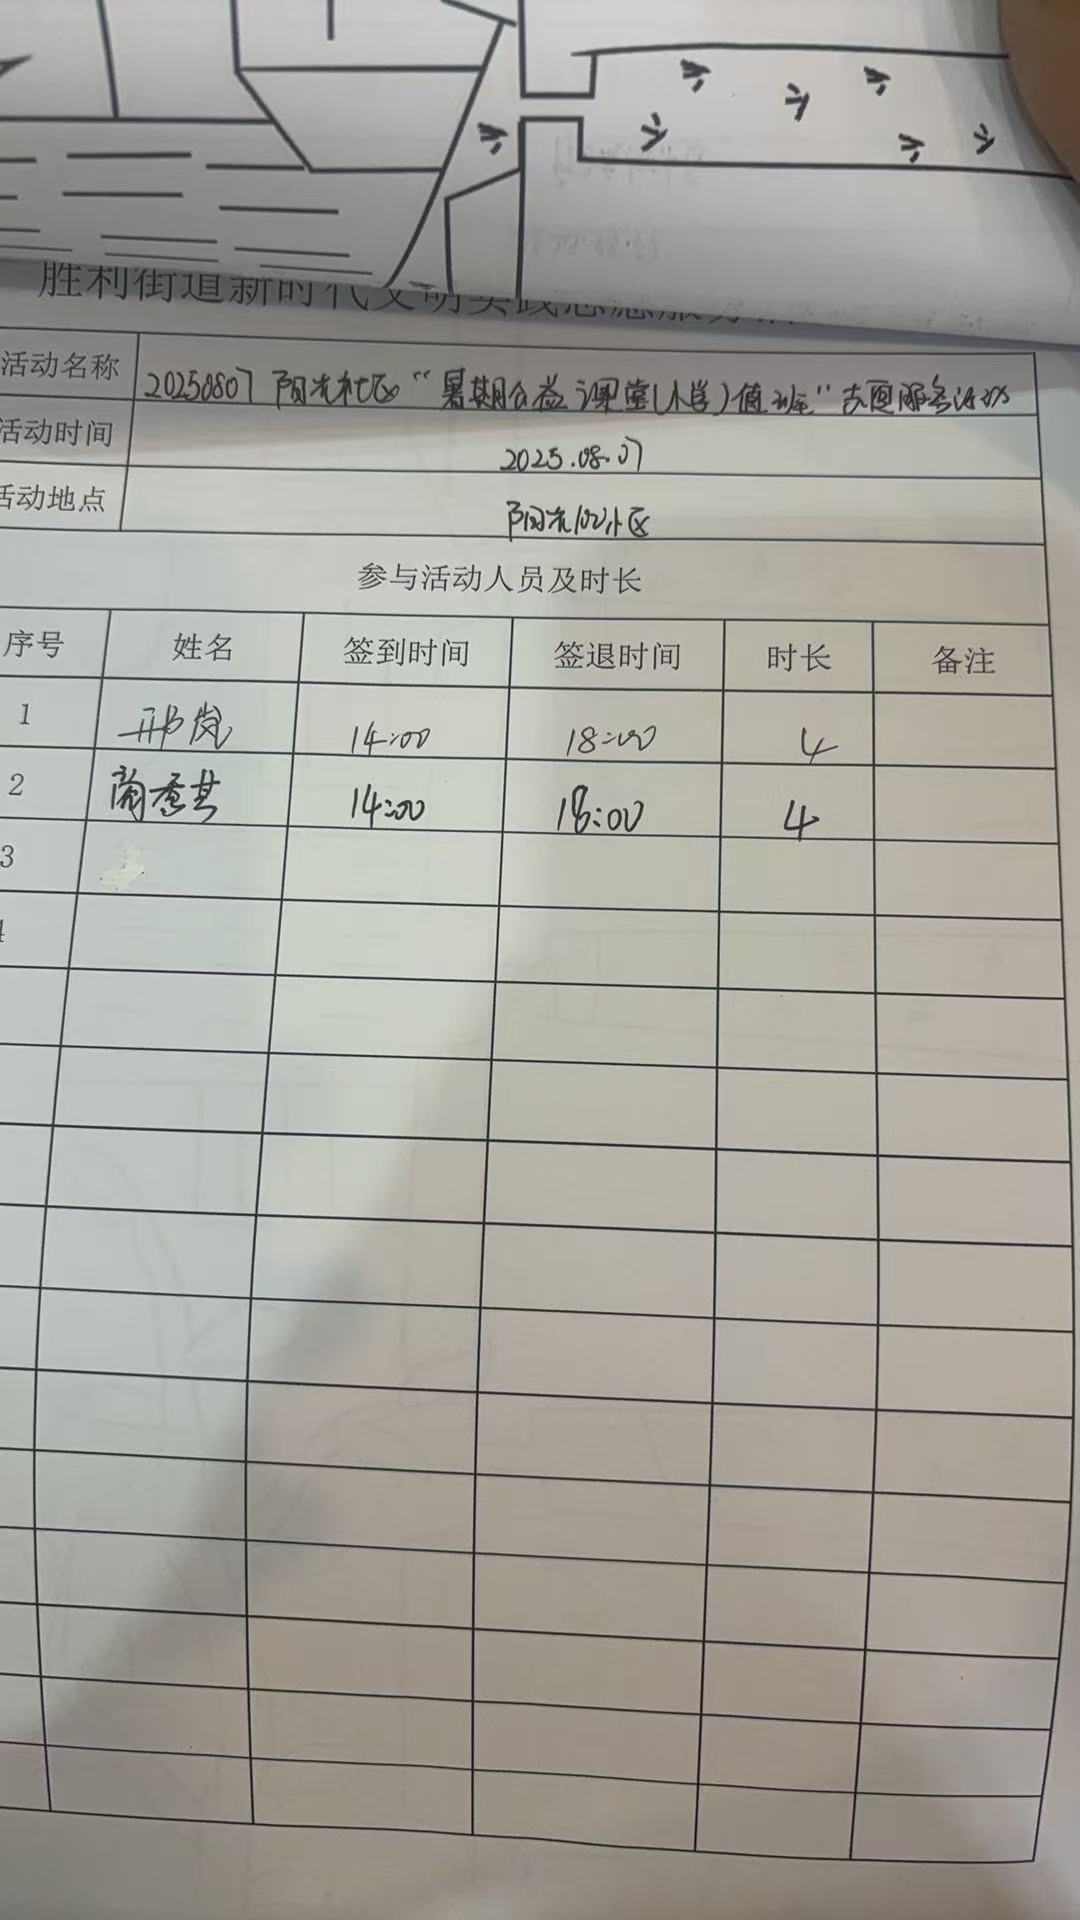 胜利街道新时代文明实践志愿服务
活动名称 20250807 阳光社区“暑期公益课堂(小学)值班”志愿服务活动
活动时间 2025.08.07
活动地点 阳光100小区
参与活动人员及时长
序号 姓名 签到时间 签退时间 时长 备注
1 邢岚 14:00 18:00 4
2 14:00 18:00 4
3
4